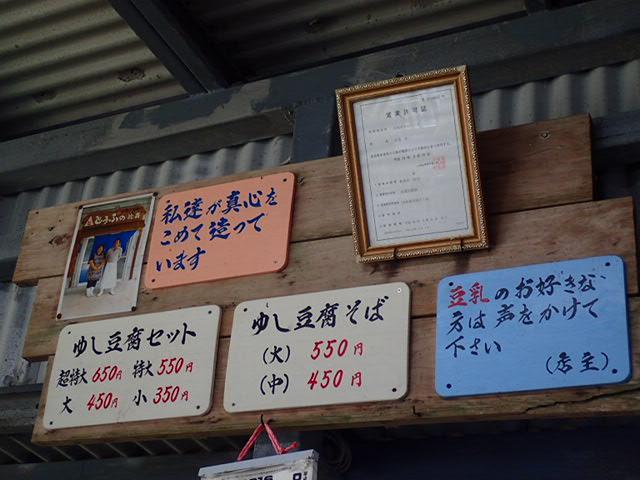 営業許可証
とうふの比嘉
私達が真心を
こめて造って
います
ゆし豆腐セット
超特大 650円 特大 550円
大 450円 小 350円
ゆし豆腐そば
(大) 550円
(中) 450円
豆乳のお好きな
方は声をかけて
下さい
(店主)